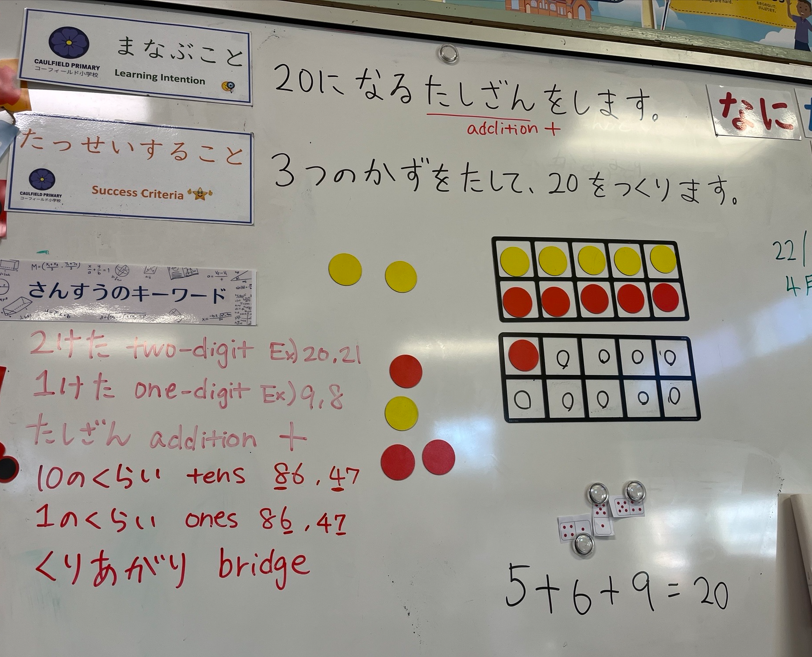 まなぶこと
CAULFIELD PRIMARY
コーフィールド小学校
Learning Intention
20になるたしざんをします。
addition +
なに
たっせいすること
CAULFIELD PRIMARY
コーフィールド小学校
Success Criteria
3つのかずをたして、20をつくります。
22/
4月
さんすうのキーワード
2けた two-digit Ex) 20,21
1けた one-digit Ex) 9,8
たしざん addition +
10のくらい tens 86,47
1のくらい ones 86,47
くりあがり bridge
5+6+9=20